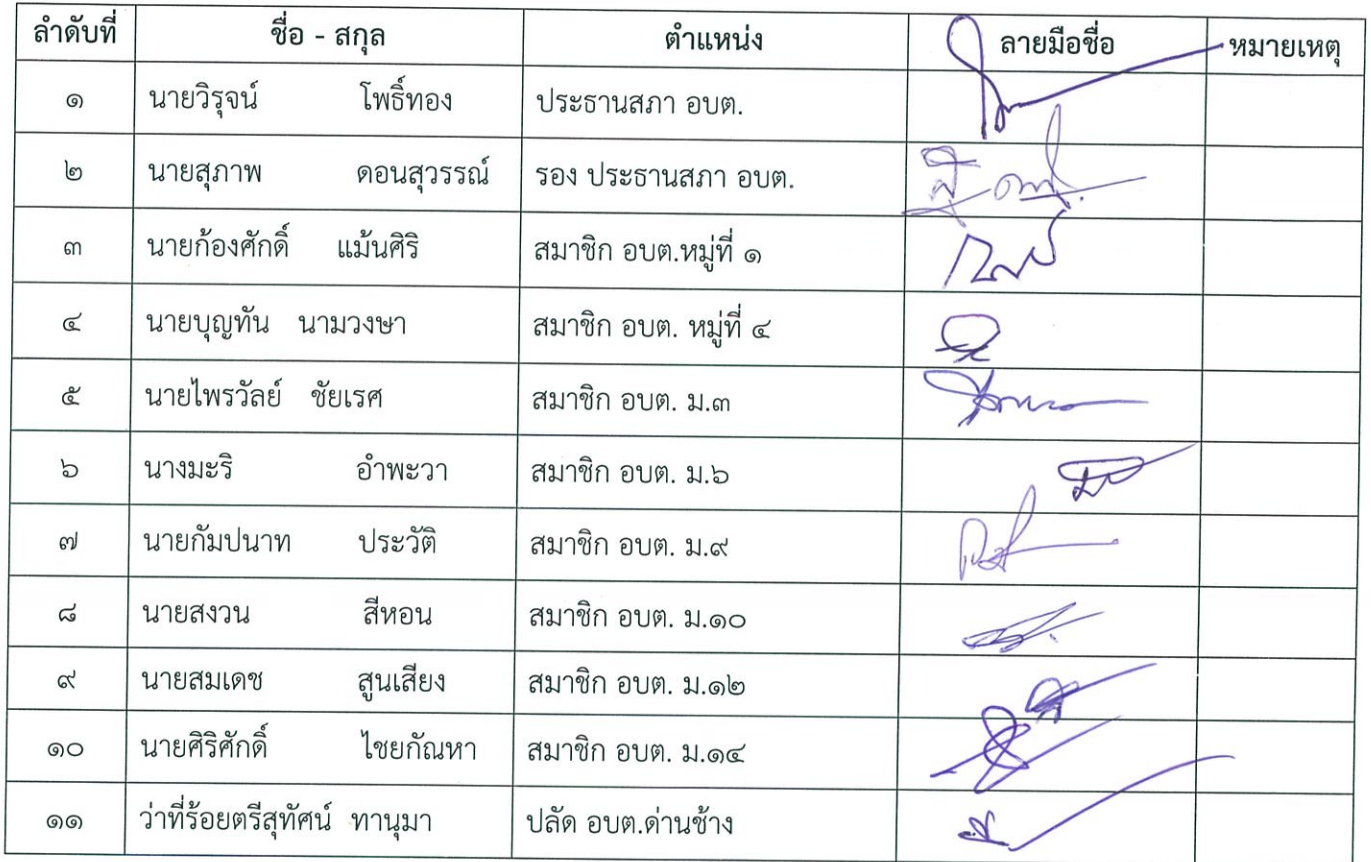 ลำดับที่ ชื่อ - สกุล ตำแหน่ง ลายมือชื่อ หมายเหตุ
๑ นายวิรุจน์ โพธิ์ทอง ประธานสภา อบต.
๒ นายสุภาพ ดอนสุวรรณ์ รอง ประธานสภา อบต.
๓ นายก้องศักดิ์ แม้นศิริ สมาชิก อบต.หมู่ที่ ๑
๔ นายบุญทัน นามวงษา สมาชิก อบต. หมู่ที่ ๔
๕ นายไพรวัลย์ ชัยเรศ สมาชิก อบต. ม.๓
๖ นางมะริ อำพะวา สมาชิก อบต. ม.๖
๗ นายกัมปนาท ประวัติ สมาชิก อบต. ม.๙
๘ นายสงวน สีหอน สมาชิก อบต. ม.๑๐
๙ นายสมเดช สูนเสียง สมาชิก อบต. ม.๑๒
๑๐ นายศิริศักดิ์ ไชยกัณหา สมาชิก อบต. ม.๑๔
๑๑ ว่าที่ร้อยตรีสุทัศน์ ทานุมา ปลัด อบต.ด่านช้าง